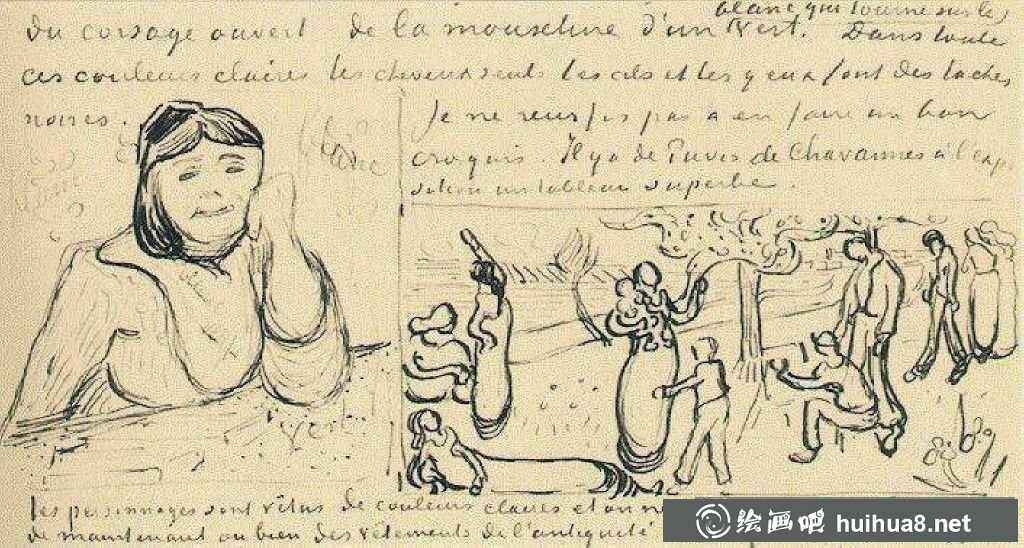 blanc qui tourne sur les
du corsage ouvert de la mousseline d'un vert. Dans toute
ces couleurs claires les cheveux seuls les cils et les yeux font des taches
noires.
Je ne reussis pas a en faire un bon
croquis. Il y a de Puvis de Chavannes à l'expo
sition un tableau superbe.
blanc
vert
les personnages sont vêtus de couleurs claires et on ne
de maintenant ou bien des vêtements de l'antiquité
绘画吧 huihua8.net